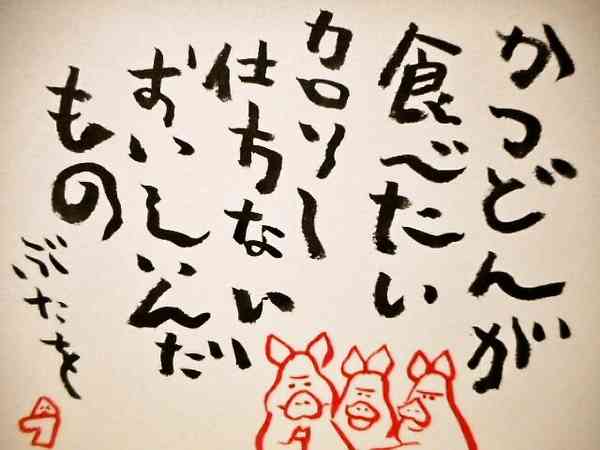 かつどんが
食べたい
カロリー
仕方ない
おいしいんだ
もの
ぶたを